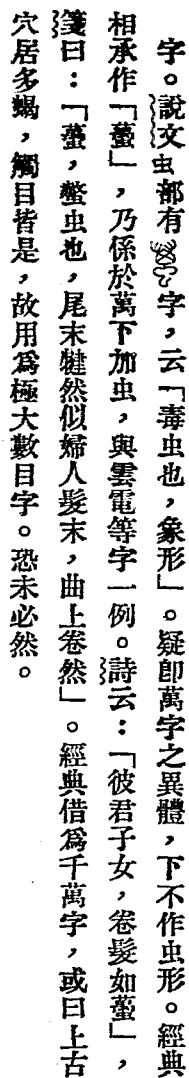 字。說文虫部有字，云「毒虫也，象形」。疑卽萬字之異體，下不作虫形。經典
相承作「蠆」，乃係於萬下加虫，與雲電等字一例。詩云：「彼君子女，卷髮如蠆」，
箋曰：「蠆，螫虫也，尾末揵然似婦人髮末，曲上卷然」。經典借爲千萬字，或曰上古
穴居多蝎，觸目皆是，故用爲極大數目字。恐未必然。